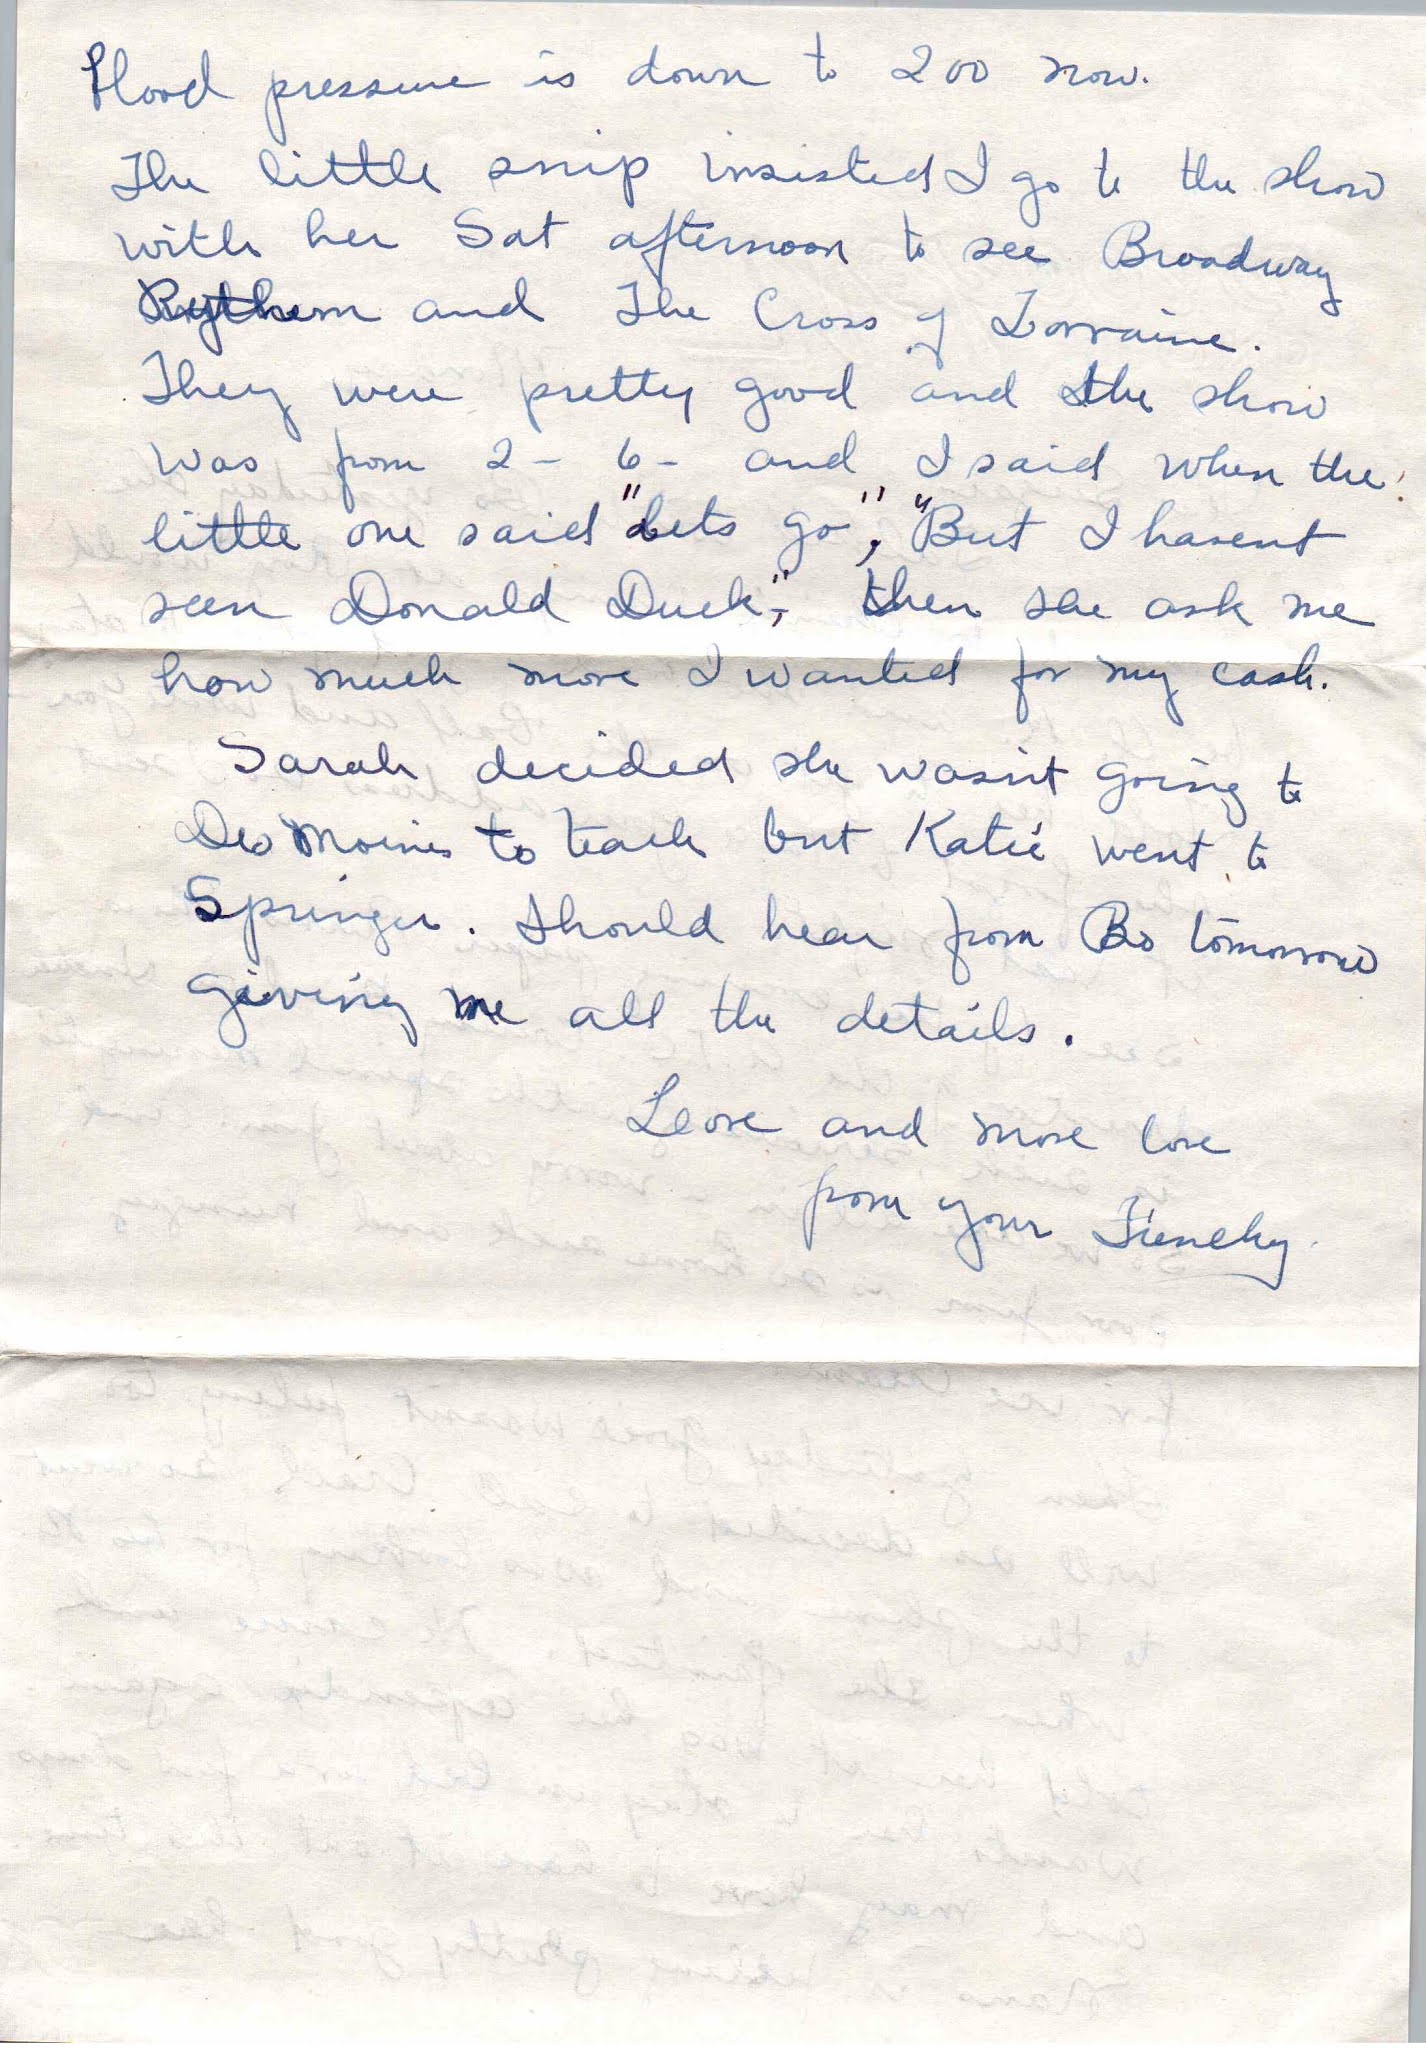 Blood pressure is down to 200 now.
The little snip insisted I go to the show
with her Sat afternoon to see Broadway
Rythem and The Cross of Lorraine.
They were pretty good and the show
was from 2 - 6 - and I said when the
little one said "lets go", "But I havent
seen Donald Duck", then she ask me
how much more I wanted for my cash.
Sarah decided she wasn't going to
Des Moines to teach but Katie went to
Springer. Should hear from Bo tomorrow
giving me all the details.
Love and more love
from your